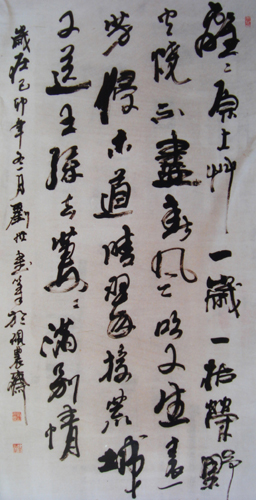 離々原上艸一歲一枯榮野
火燒不盡春風吹又生遠
芳侵古道晴翠接荒城
又送王孫去萋々滿別情
歲在己卯年冬月劉世於硯農齋